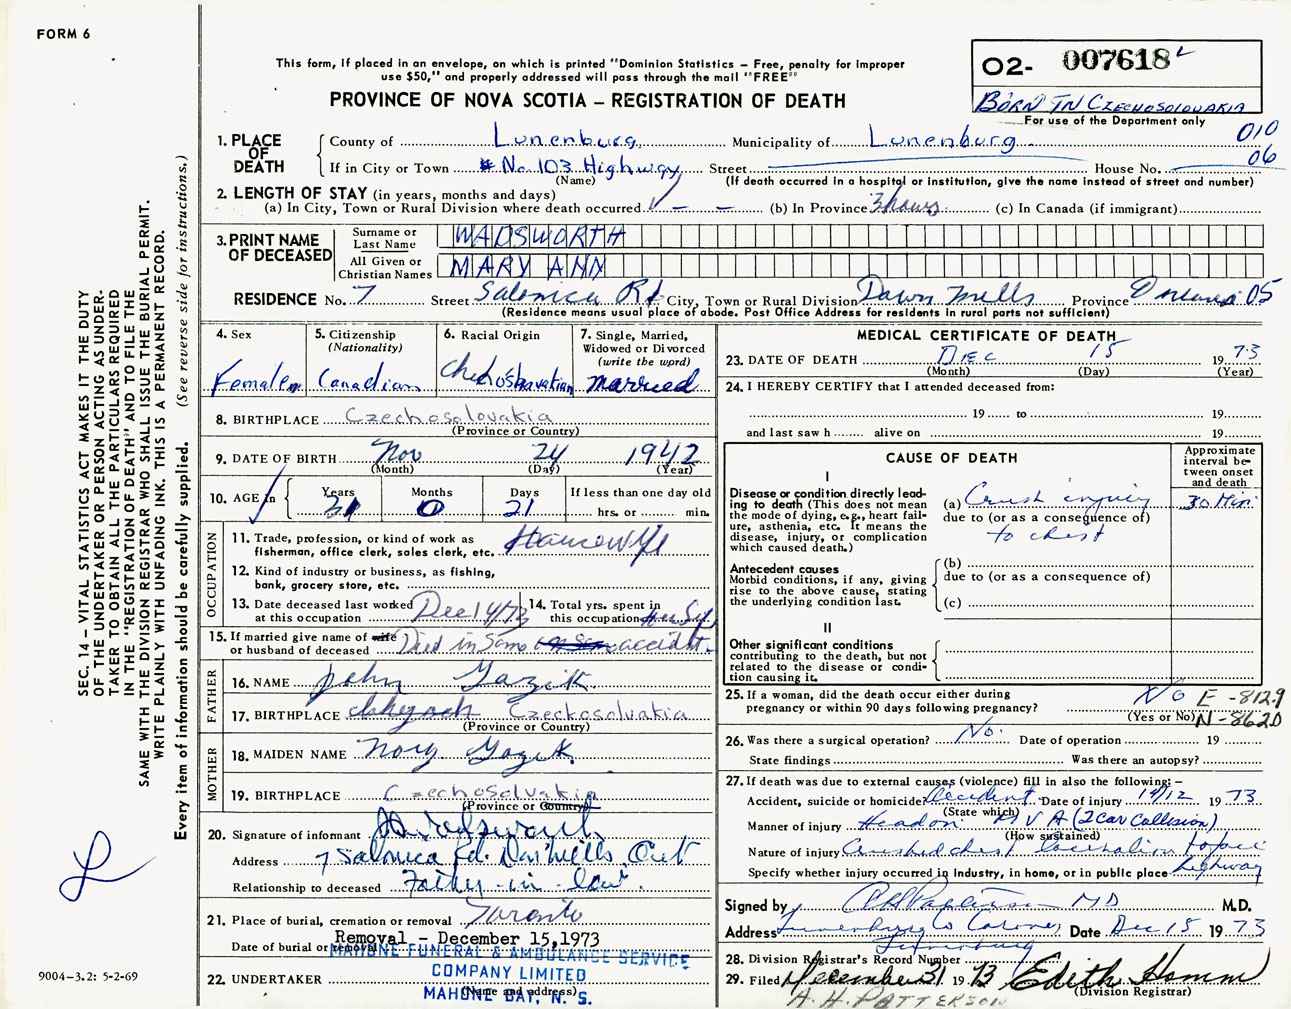 FORM 6
This form, if placed in an envelope, on which is printed "Dominion Statistics – Free, penalty for improper
use $50," and properly addressed will pass through the mail "FREE"
PROVINCE OF NOVA SCOTIA – REGISTRATION OF DEATH
O2- 007618
BORN IN CZECHOSOLOVAKIA
For use of the Department only
010
06
1. PLACE OF DEATH
County of Lunenburg Municipality of Lunenburg
If in City or Town # No. 103 Highway Street House No.
(Name) (If death occurred in a hospital or institution, give the name instead of street and number)
2. LENGTH OF STAY (in years, months and days)
(a) In City, Town or Rural Division where death occurred (b) In Province 3 hours (c) In Canada (if immigrant)
3. PRINT NAME OF DECEASED
Surname or Last Name WADSWORTH
All Given or Christian Names MARY ANN
RESIDENCE No. 7 Street Salonica Rd City, Town or Rural Division Dawn Mills Province 05
(Residence means usual place of abode. Post Office Address for residents in rural parts not sufficient)
4. Sex
Female
5. Citizenship (Nationality)
Canadian
6. Racial Origin
7. Single, Married, Widowed or Divorced (write the word)
married
8. BIRTHPLACE Czechosolovakia
(Province or Country)
9. DATE OF BIRTH Nov 24 1942
(Month) (Day) (Year)
10. AGE in Years Months Days If less than one day old
31 0 21 hrs. or min.
OCCUPATION
11. Trade, profession, or kind of work as fisherman, office clerk, sales clerk, etc. Housewife
12. Kind of industry or business, as fishing, bank, grocery store, etc.
13. Date deceased last worked at this occupation Dec 14/73
14. Total yrs. spent in this occupation
15. If married give name of wife or husband of deceased Died in same accident
FATHER
16. NAME John Gazik
17. BIRTHPLACE Czeckosolvakia
(Province or Country)
MOTHER
18. MAIDEN NAME Nory Gozik
19. BIRTHPLACE Czechoselvakia
(Province or Country)
20. Signature of informant Wadsworth
Address 7 Salonica Rd. Don Mills Ont
Relationship to deceased Father-in-law
21. Place of burial, cremation or removal Toronto
Date of burial or removal Removal – December 15,1973
22. UNDERTAKER
(Name and address)
MAHONE FUNERAL & AMBULANCE SERVICE
COMPANY LIMITED
MAHONE BAY, N. S.
MEDICAL CERTIFICATE OF DEATH
23. DATE OF DEATH Dec 15 1973
(Month) (Day) (Year)
24. I HEREBY CERTIFY that I attended deceased from:
19 to 19
and last saw h alive on 19
CAUSE OF DEATH
Approximate interval between onset and death
I
Disease or condition directly leading to death (This does not mean the mode of dying, e.g., heart failure, asthenia, etc. It means the disease, injury, or complication which caused death.)
(a) Crush injury 30 Min
due to (or as a consequence of)
to chest
Antecedent causes
Morbid conditions, if any, giving rise to the above cause, stating the underlying condition last.
(b)
due to (or as a consequence of)
(c)
II
Other significant conditions
contributing to the death, but not related to the disease or condition causing it.
25. If a woman, did the death occur either during pregnancy or within 90 days following pregnancy? No
(Yes or No)
E -8129
N-8620
26. Was there a surgical operation? No. Date of operation 19
State findings Was there an autopsy?
27. If death was due to external causes (violence) fill in also the following:–
Accident, suicide or homicide? Accident Date of injury 14/12 1973
(State which)
Manner of injury Headon MVA (2 Car Collision)
(How sustained)
Nature of injury Crushed chest laceration
Specify whether injury occurred in Industry, in home, or in public place highway
Signed by MD M.D.
Address Lunenburg Co Coroner Date Dec 15 1973
Lunenburg
28. Division Registrar's Record Number
29. Filed December 31 1973 Edith Homm
(Division Registrar)
A. H. PATTERSON
SEC. 14 – VITAL STATISTICS ACT MAKES IT THE DUTY
OF THE UNDERTAKER OR PERSON ACTING AS UNDER-
TAKER TO OBTAIN ALL THE PARTICULARS REQUIRED
IN THE "REGISTRATION OF DEATH" AND TO FILE THE
SAME WITH THE DIVISION REGISTRAR WHO SHALL ISSUE THE BURIAL PERMIT.
WRITE PLAINLY WITH UNFADING INK. THIS IS A PERMANENT RECORD.
Every item of information should be carefully supplied. (See reverse side for instructions.)
9004–3.2: 5-2-69